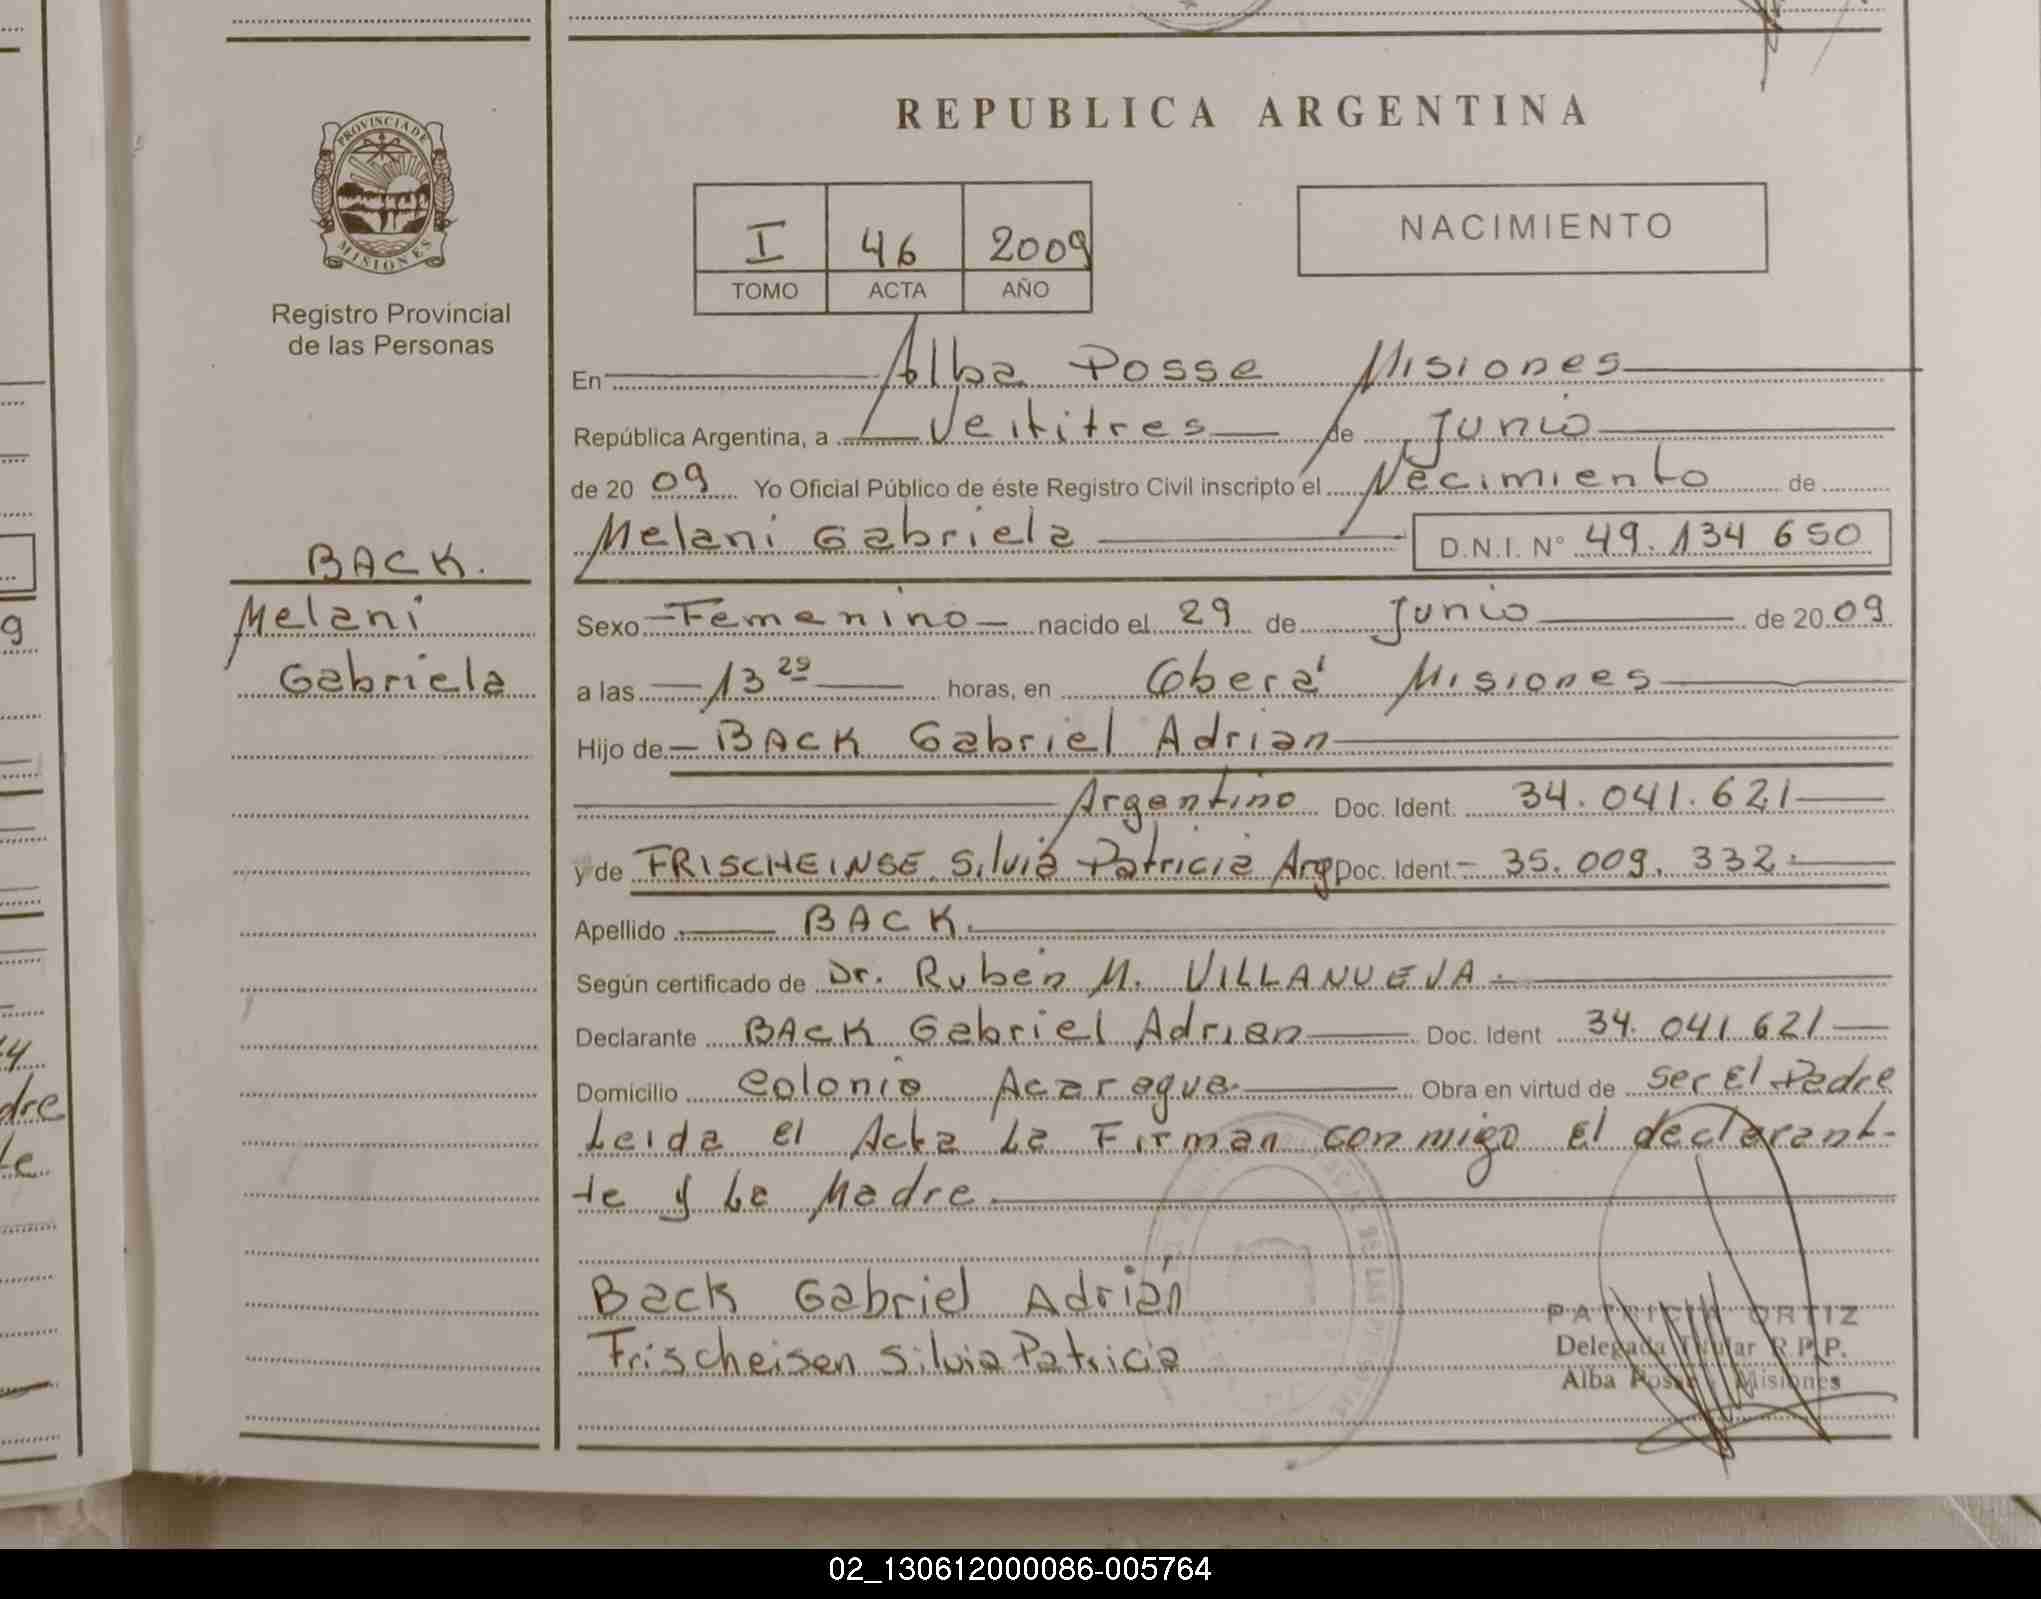 REPUBLICA ARGENTINA
PROVINCIA DE
MISIONES
Registro Provincial
de las Personas
NACIMIENTO
I 46 2009
TOMO ACTA AÑO
En Alba Posse Misiones
República Argentina, a Veititres de Junio
de 20 09 Yo Oficial Público de éste Registro Civil inscripto el Nacimiento de
Melani Gabriela D.N.I. N° 49.134 650
BACK.
Melani
Gabriela
Sexo Femenino nacido el 29 de Junio de 20 09
a las 13 29 horas, en Oberá Misiones
Hijo de BACK Gabriel Adrian
Argentino Doc. Ident. 34.041.621
y de FRISCHEINSE Silvia Patricia Arg Doc. Ident 35.009.332.
Apellido BACK.
Según certificado de Dr. Rubén M. VILLANUEVA.
Declarante BACK Gabriel Adrian Doc. Ident 34.041.621
Domicilio Colonia Acaragua. Obra en virtud de Ser El Padre
Leida el Acta La Firman conmigo El declarant-
te y La Madre.
Back Gabriel Adrián
Frischeisen Silvia Patricia
PATRICIA ORTIZ
Delegada Titular R.P.P.
Alba Posse - Misiones
02_130612000086-005764